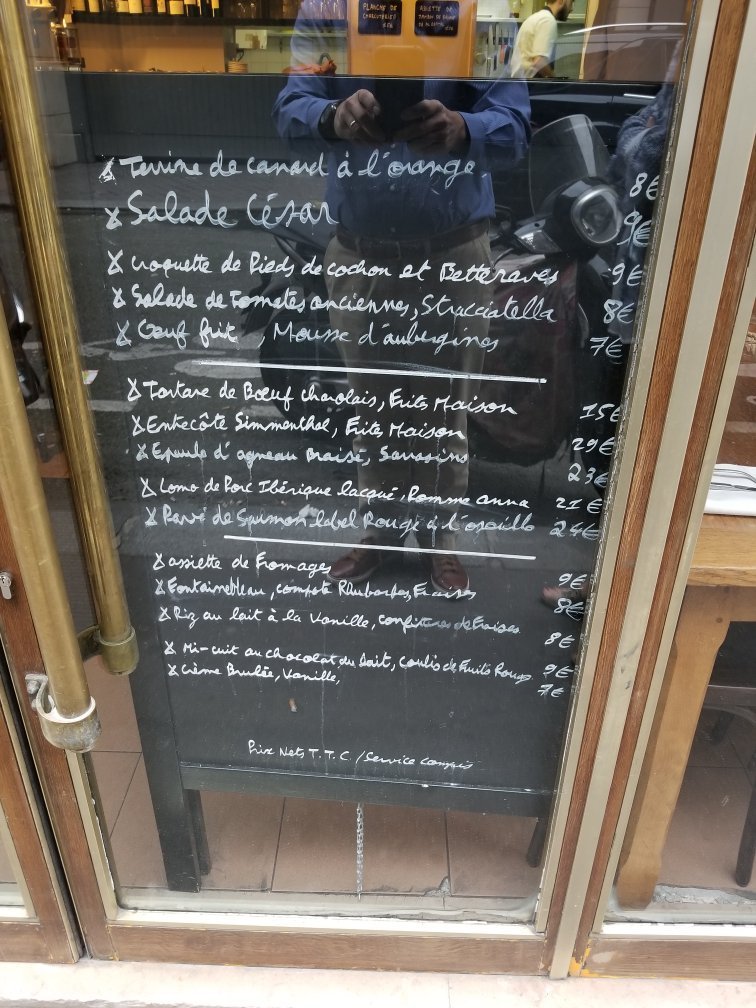 PLANCHE DE
CHARCUTERIES
ASSIETTE DE
Terrine de canard à l'orange 8€
Salade César 9€
Croquette de Pieds de cochon et Betteraves 9€
Salade de Tomates anciennes, Stracciatella 8€
Œuf frit , Mousse d'aubergines 7€
Tartare de Bœuf charolais, Frites Maison 15€
Entrecôte Simmenthal, Frites Maison 29€
Epaule d'agneau Braisé, Sarrasins 23€
Lomo de Porc Ibérique laqué, Pomme anna 21€
Pavé de Saumon label Rouge à l'oseille 24€
assiette de Fromages 9€
Fontainebleau, compote Rhubarbes, Fraises 8€
Riz au lait à la Vanille, confitures de Fraises 8€
Mi-cuit au chocolat du lait, coulis de Fruits Rouges 9€
Crème Brulée, Vanille, 7€
Prix Nets T.T.C. / Service Compris